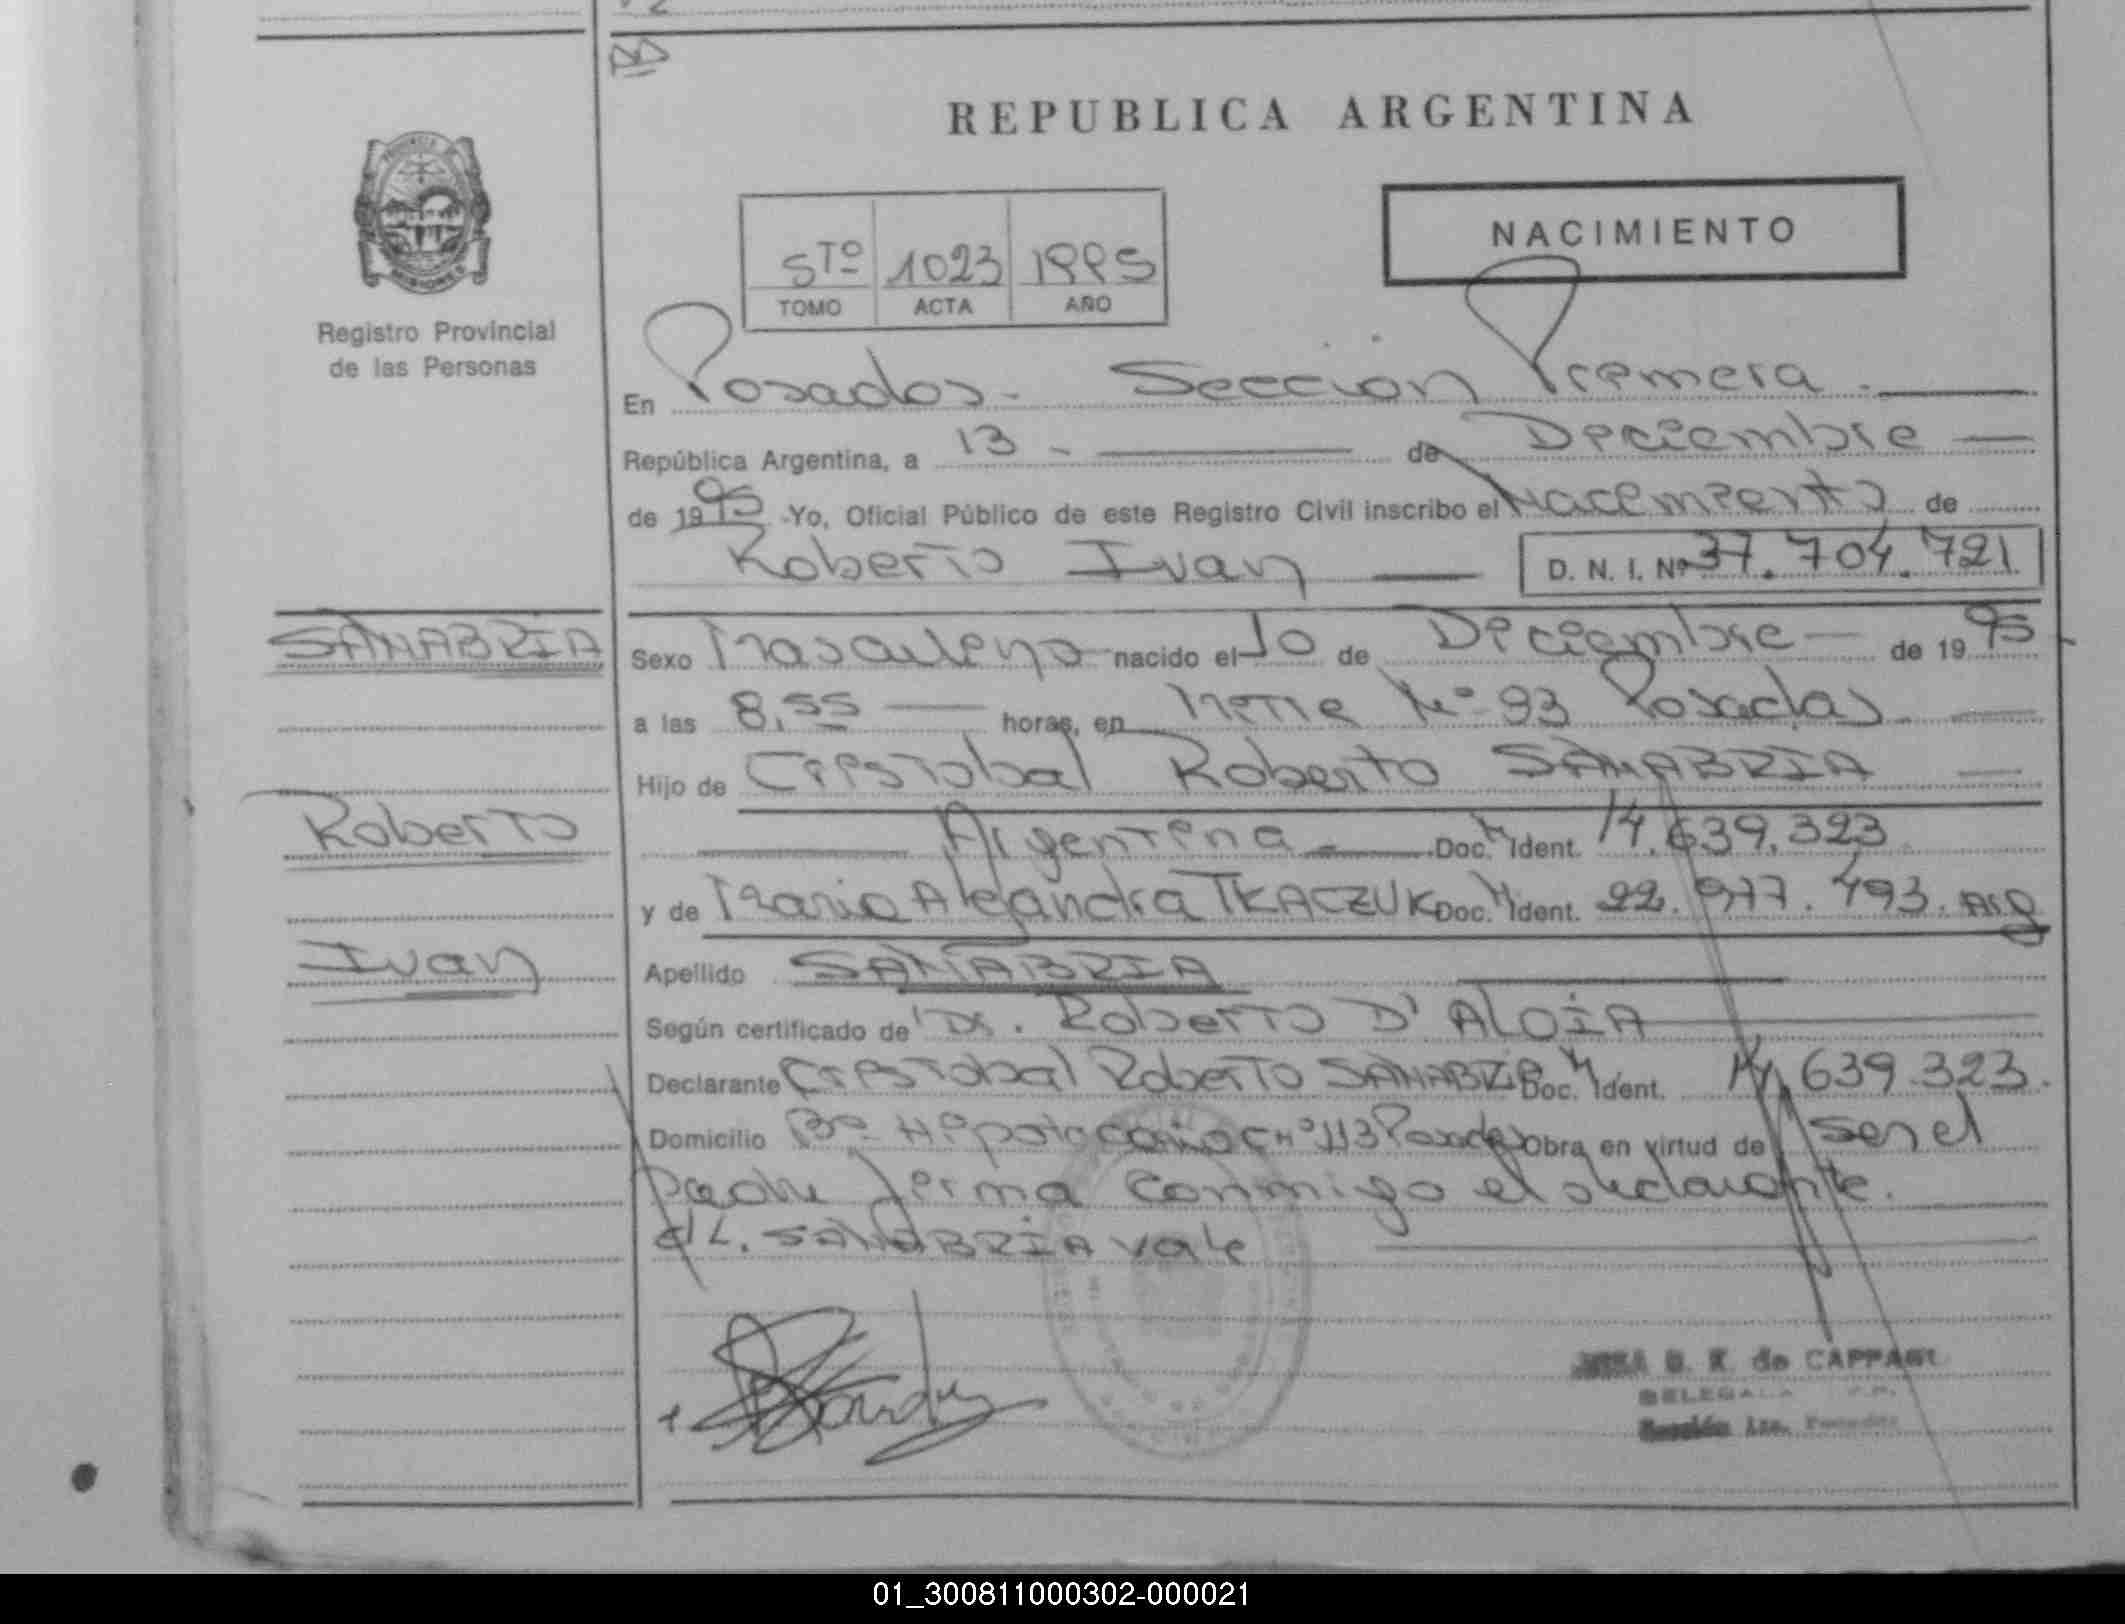 REPUBLICA ARGENTINA
NACIMIENTO
5TO 1023 1995
TOMO ACTA AÑO
Registro Provincial
de las Personas
En Posadas - Sección Primera
República Argentina, a 13 - de Diciembre
de 1995 Yo, Oficial Público de este Registro Civil inscribo el Nacimiento de
Roberto Ivan D. N. I. Nº 37.704.721
SANABRIA
Sexo Masculino nacido el 10 de Diciembre de 1995
a las 8,55 horas, en Mitre Nº 93 Posadas
Hijo de Cristobal Roberto SANABRIA
Roberto
Argentina Doc. Ident. 14.639.323
y de Maria Alejandra TKACZUK Doc. Ident. 22.977.493. Arg
Ivan
Apellido SANABRIA
Según certificado de Dr. Roberto D'ALOIA
Declarante Cristobal Roberto SANABRIA Doc. Ident. 14.639.323.
Domicilio Bº Hipotecario C Nº 113 Posadas Obra en virtud de ser el
padre firma conmigo el declarante.
SANABRIA vale
de CAPPARI
01_300811000302-000021